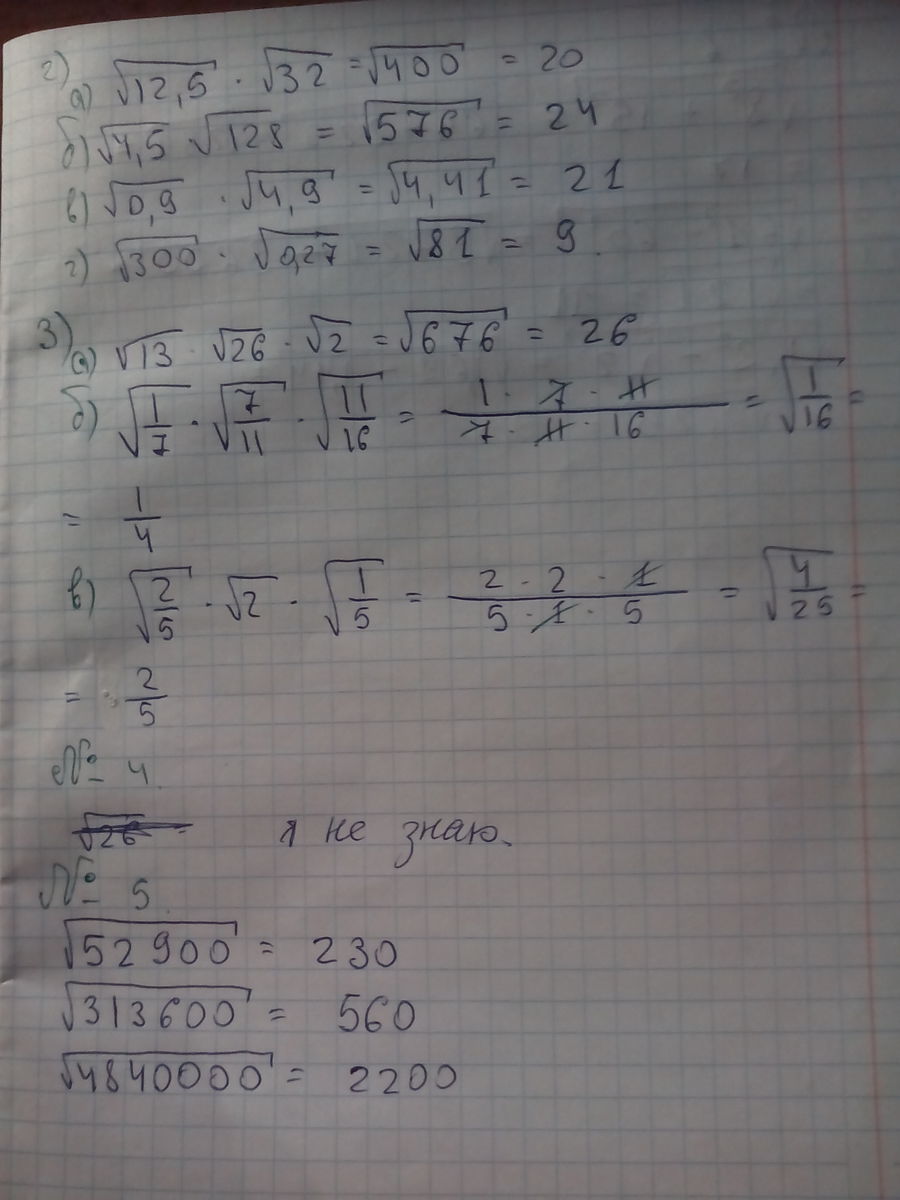 2)
а) √12,5 · √32 = √400 = 20
б) √4,5 √128 = √576 = 24
в) √0,9 · √4,9 = √4,41 = 21
г) √300 · √0,27 = √81 = 9.
3)
а) √13 · √26 · √2 = √676 = 26
б) √1/7 · √7/11 · √11/16 = 1 · 7 · 11 / 7 · 11 · 16 = √1/16 =
= 1/4
в) √2/5 · √2 · √1/5 = 2 · 2 · 1 / 5 · 1 · 5 = √4/25 =
= 2/5
№ 4.
√26 = я не знаю.
№ 5.
√52900 = 230
√313600 = 560
√4840000 = 2200